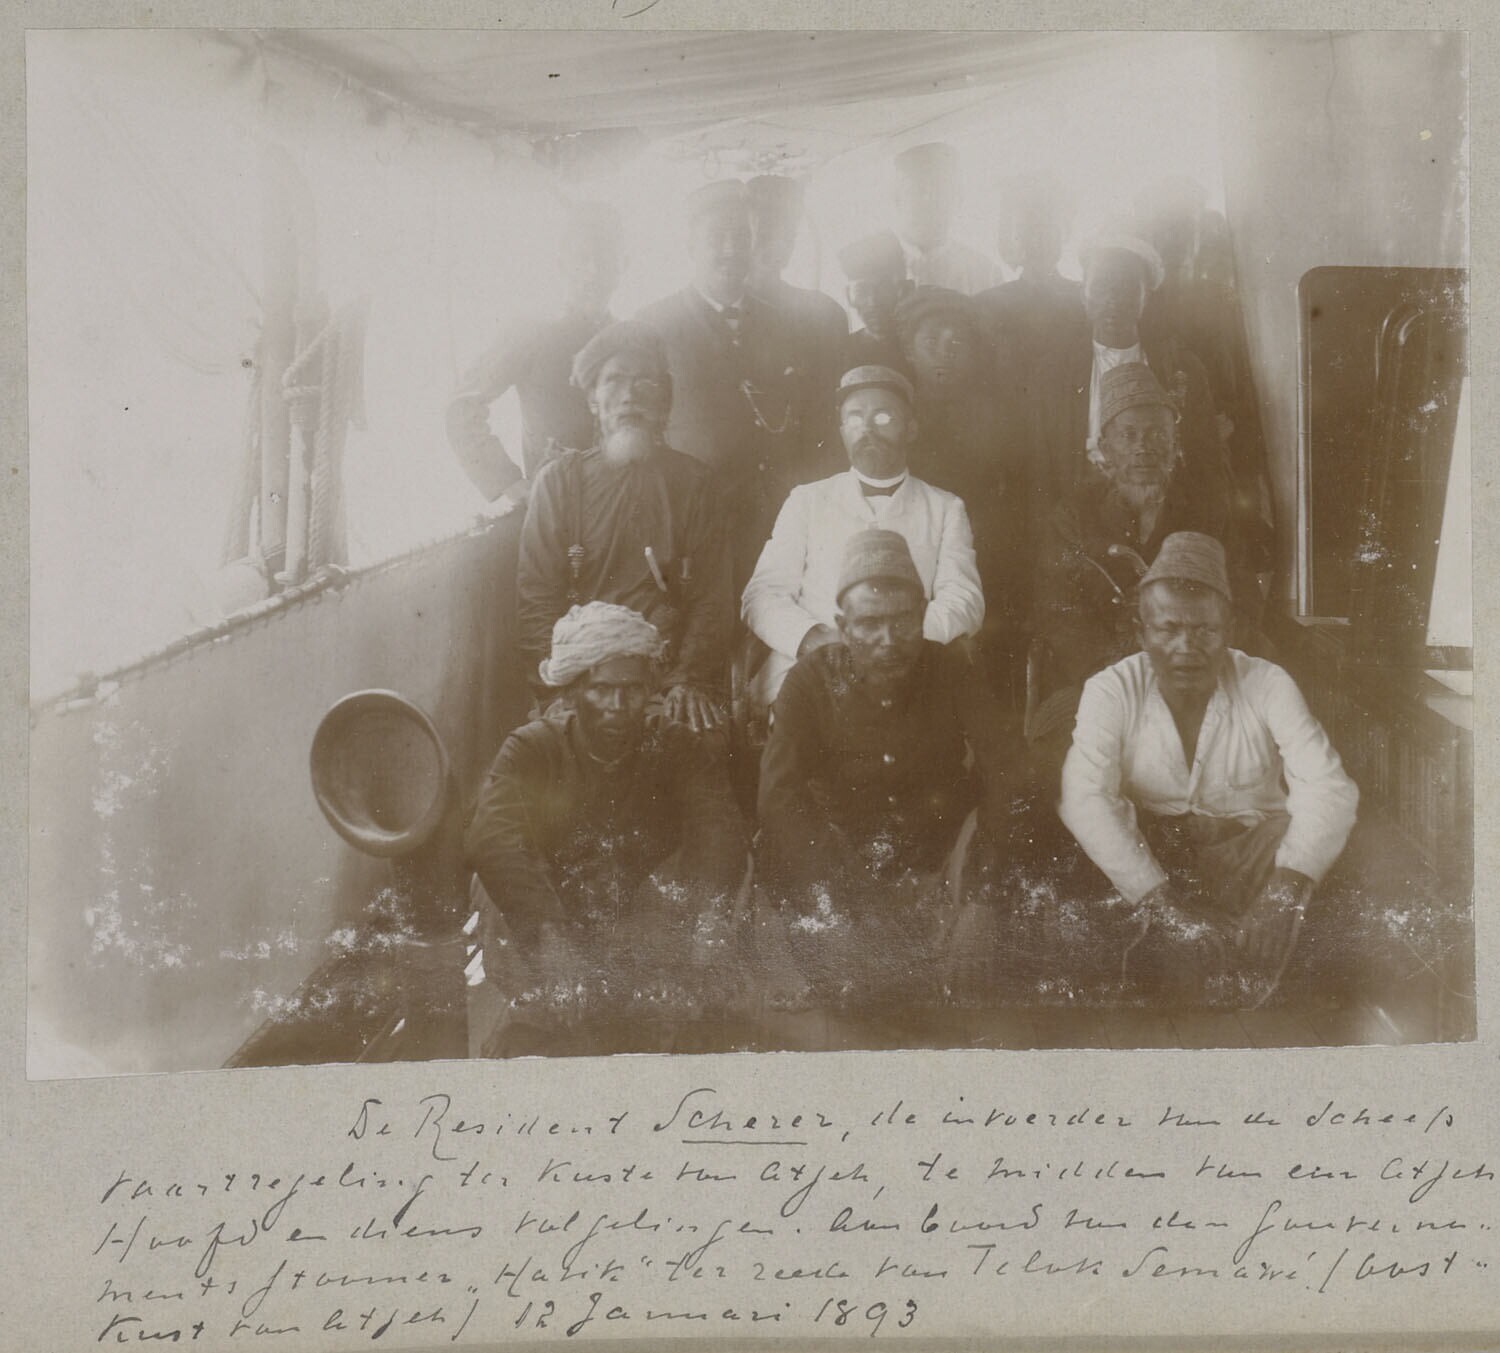 De Resident Scherer, de invoerder van de Scheeps
vaartregeling ter Kuste van Atjeh, te midden van een Atjeh
Hoofd en diens volgelingen. Aan boord van den Gouverne-
ments stoomer „Havik" ter reede van Telok Semawé. (Oost-
Kust van Atjeh) 12 Januari 1893